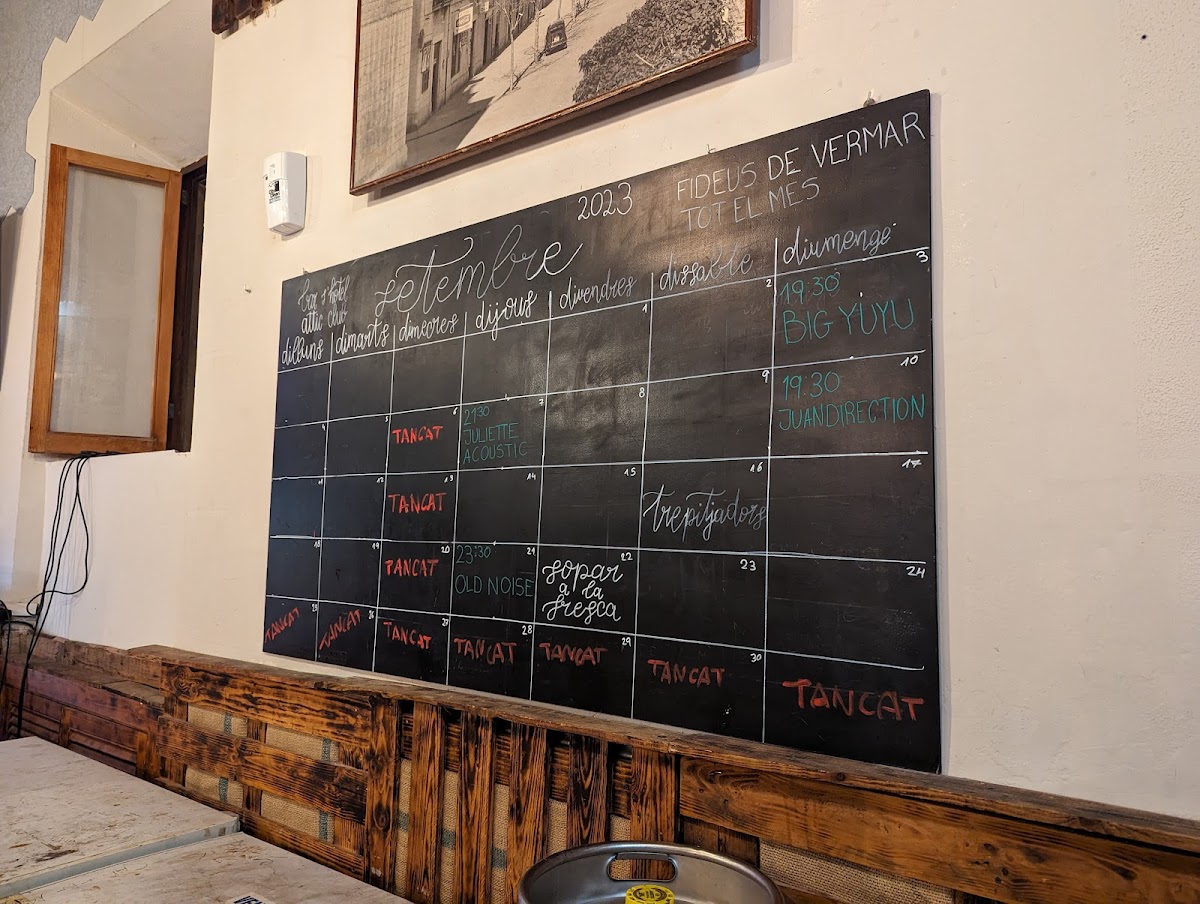 2023
FIDEUS DE VERMAR
TOT EL MES
setembre
bar s'hotel
attic club
dilluns dimarts dimecres dijous divendres dissabte diumenge
1 2 3
19:30
BIG YUYU
4 5 6 7 8 9 10
TANCAT
21:30
JULIETTE
ACOUSTIC
19:30
JUANDIRECTION
12 13 14 15 16 17
TANCAT
trepitjadors
18 19 20 21 22 23 24
TANCAT
23:30
OLD NOISE
sopar
a la
fresca
25 26 27 28 29 30
TANCAT TANCAT TANCAT TANCAT TANCAT TANCAT TANCAT